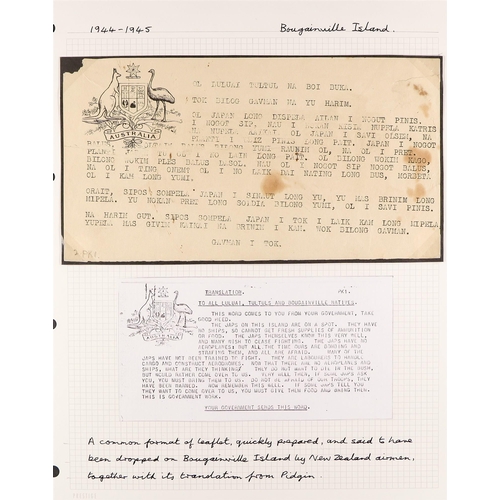 1944-1945
Bougainville Island.
OL LULUAI TULTUL NA BOI BUKA.
TOK BILOG GAVMAN NA YU HARIM.
OL JAPAN LONG DISPELA AILAN I NOGUT PINIS.
I NOGOT SIP, NAU I
I SAVI OLSEM, NA
PINIS LONG PAIT. JAPAN I NOGOT
AUSTRALIA
NA OL I PRET.
I NO LAIK LONG PAIT. OL BILONG WOKIM KAGO,
BILONG WOKIM PLES BALUS TASOL. NAU OL I NOGOT SIP NOGOT BALUS,
NA OL I TING WHEM? OL I NO LAIK DAI NATING LONG BUS, MOBETA
OL I KAM LONG YUMI.
ORAIT, SIPOS SOMPELA JAPAN I SIKAUT LONG YU, YU MAS BRINIM LONG
MIPELA. YU NOKAN PRET LONG SOLDIA BILONG YUMI, OL I SAVI PINIS.
NA HARIM GUT. SIPOS SOMPELA JAPAN I TOK I LAIK KAM LONG MIPELA,
YUPELA MAS GIVIM KAIKAI NA BRINIM I KAM. WOK BILONG GAVMAN.
GAVMAN I TOK.
TRANSLATION.
TO ALL LULUAI, TULTULS AND BOUGAINVILLE NATIVES.
THIS WORD COMES TO YOU FROM YOUR GOVERNMENT, TAKE
GOOD HEED.
THE JAPS ON THIS ISLAND ARE ON A SPOT. THEY HAVE
NO SHIPS, SO CANNOT GET FRESH SUPPLIES OF AMMUNITION
OR FOOD. THE JAPS THEMSELVES KNOW THIS VERY WELL,
AND MANY WISH TO CEASE FIGHTING. THE JAPS HAVE NO
AEROPLANES: BUT ALL THE TIME OURS ARE BOMBING AND
STRAFING THEM, AND ALL ARE AFRAID. MANY OF THE
JAPS HAVE NOT BEEN TRAINED TO FIGHT. THEY ARE LABOURERS TO HANDLE
CARGO AND CONSTRUCT AERODROMES. NOW THAT THERE ARE NO AEROPLANES AND
SHIPS, WHAT ARE THEY THINKING? THEY DO NOT WANT TO DIE IN THE BUSH,
BUT WOULD RATHER COME OVER TO US. VERY WELL THEN, IF SOME JAPS ASK
YOU, YOU MUST BRING THEM TO US. DO NOT BE AFRAID OF OUR TROOPS, THEY
HAVE BEEN WARNED. NOW REMEMBER THIS WELL. IF SOME JAPS TELL YOU
THEY WANT TO COME OVER TO US, YOU MUST GIVE THEM FOOD AND BRING THEM.
THIS IS GOVERNMENT WORK.
YOUR GOVERNMENT SENDS THIS WORD.
A common format of leaflet, quickly prepared, and said to have
been dropped on Bougainville Island by New Zealand airmen,
together with its translation from Pidgin.